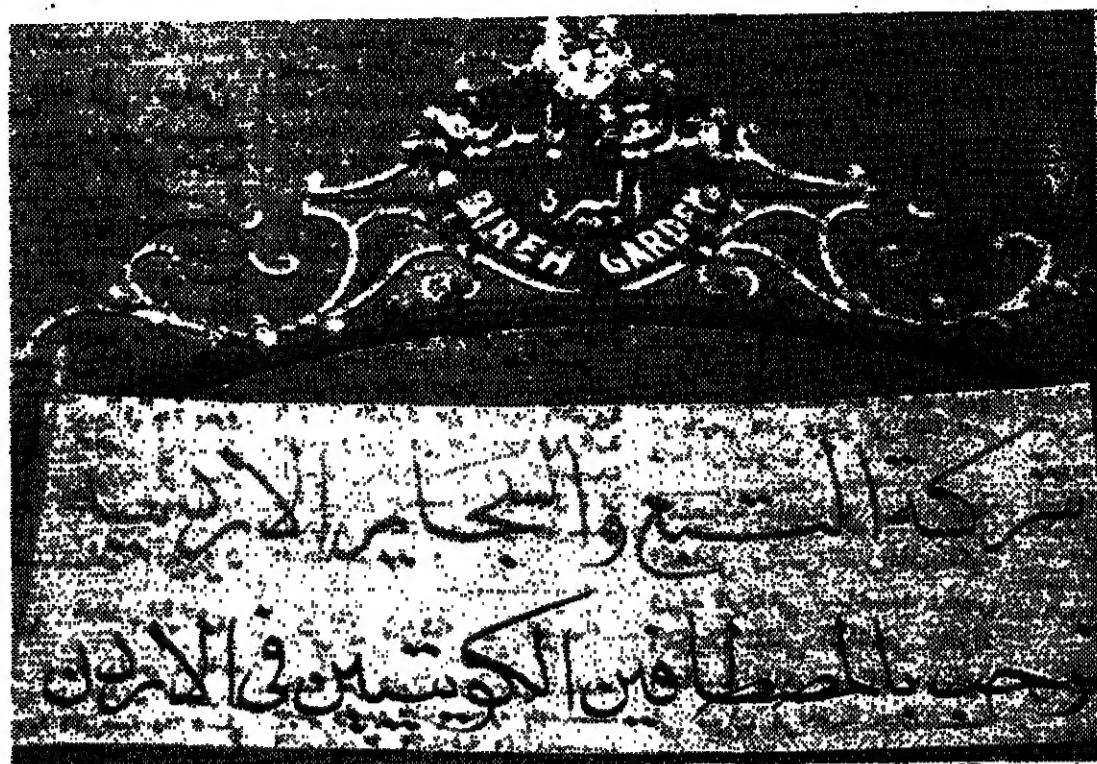 البيرة
BIREH GARDENS
شركة التبغ والسجاير الاردنية
ترحب بالمصطافين الكويتيين في الاردن